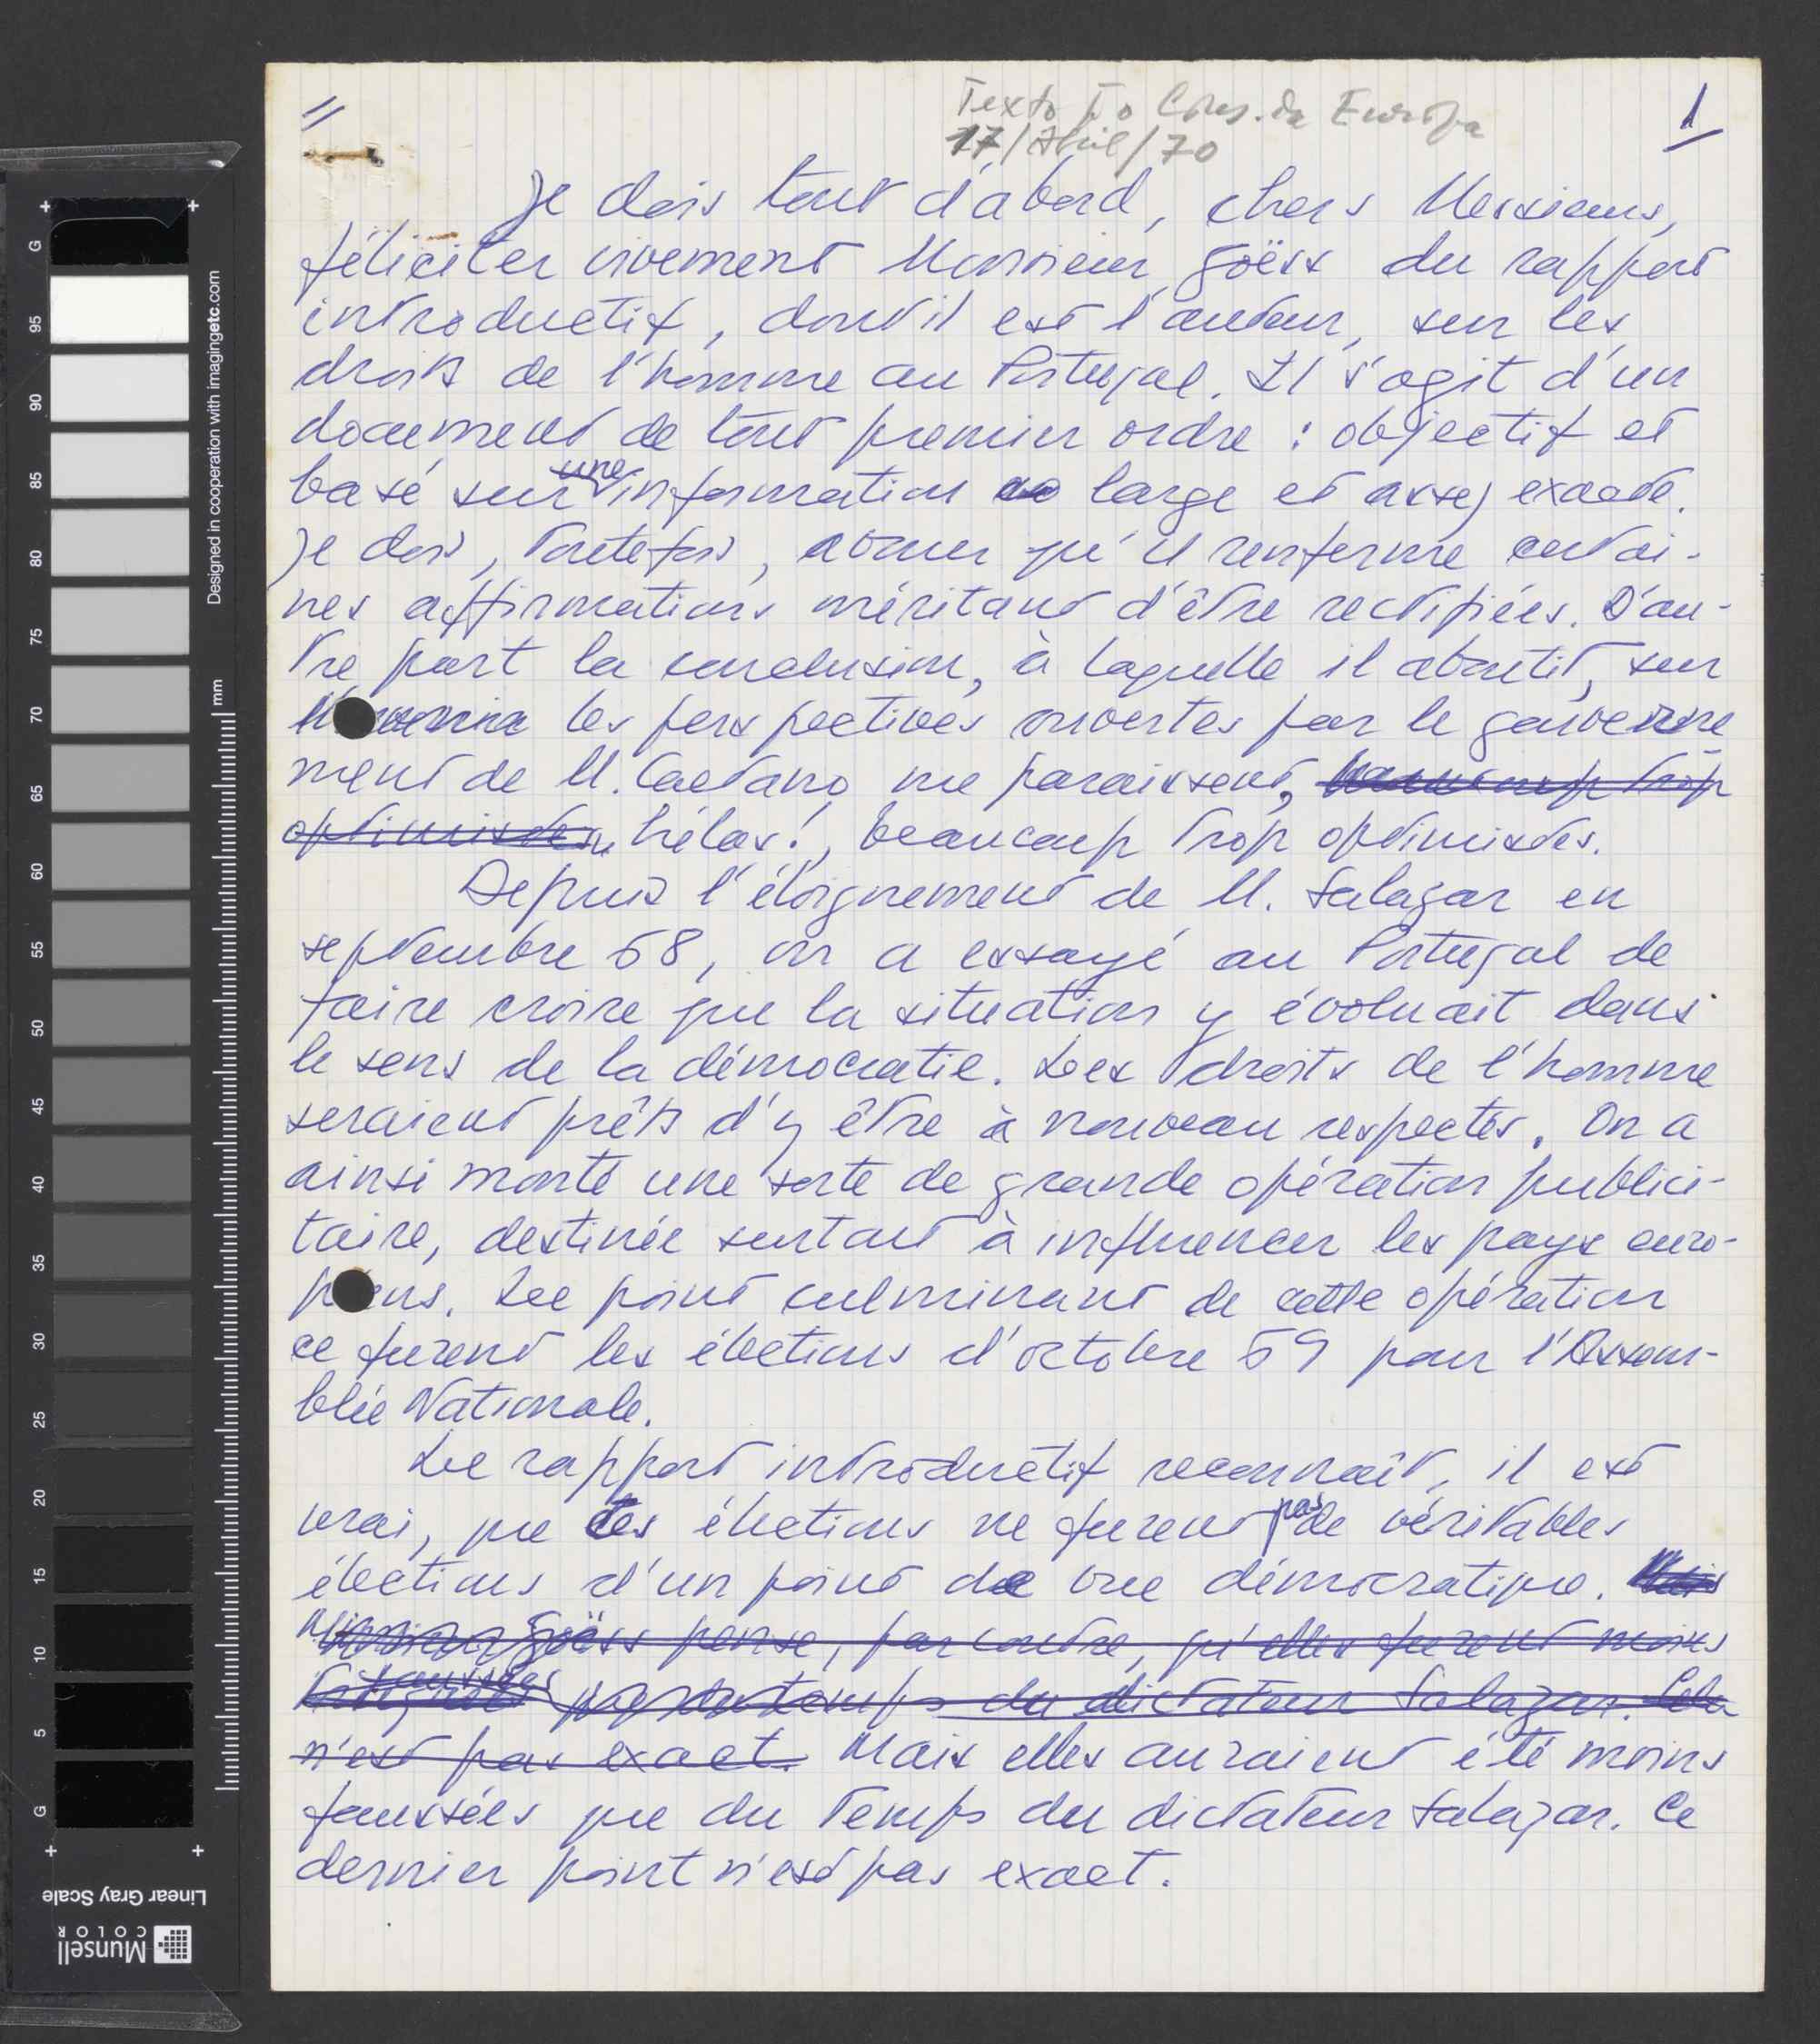 Texto p.º Cons. da Europa
17/Abril/70
1
Je dois tout d'abord, chers Messieurs,
féliciter vivement Monsieur Goëss du rapport
introductif, dont il est l'auteur, sur les
droits de l'homme au Portugal. Il s'agit d'un
document de tout premier ordre : objectif et
basé sur une information large et assez exacte.
Je dois, toutefois, avouer qu'il renferme certai-
nes affirmations méritant d'être rectifiées. D'au-
tre part la conclusion, à laquelle il aboutit, sur
les perspectives ouvertes par le gouverne
ment de M. Caetano me paraissent, beaucoup trop
optimistes, hélas!, beaucoup trop optimistes.
Depuis l'éloignement de M. Salazar en
septembre 68, on a essayé au Portugal de
faire croire que la situation y évoluait dans
le sens de la démocratie. Les droits de l'homme
seraient prêts d'y être à nouveau respectés. On a
ainsi monté une sorte de grande opération publici-
taire, destinée surtout à influencer les pays euro-
péens. Le point culminant de cette opération
ce furent les élections d'octobre 69 pour l'Assem-
blée Nationale.
Le rapport introductif reconnaît, il est
vrai, que ces élections ne furent pas de véritables
élections d'un point de vue démocratique. Mais
Monsieur Goëss pense, par contre, qu'elles furent moins
faussées que du temps du dictateur Salazar. Cela
n'est pas exact. Mais elles auraient été moins
faussées que du temps du dictateur Salazar. Ce
dernier point n'est pas exact.
G
95
90
85
80
75
70
65
60
55
50
45
40
35
30
25
20
15
10
5
G
mm
Designed in cooperation with imagingetc.com
Linear Gray Scale
Munsell
COLOR